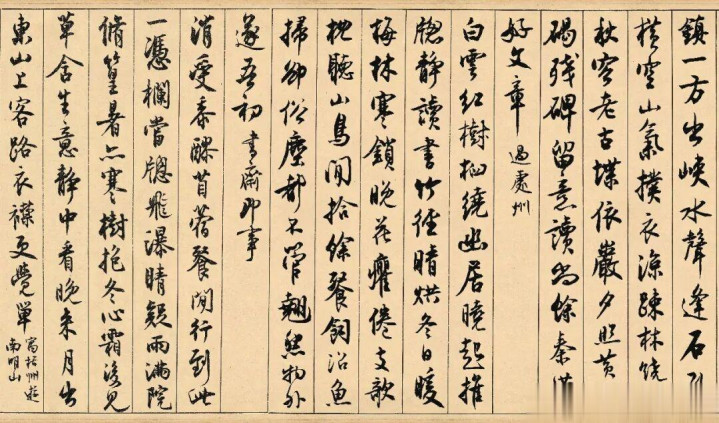 鎮一方出峽水聲逢石
橫空山氣撲衣涼疎林饒
秋容老古堞依巖夕照黃
碣殘碑留意讀尚餘秦
好文章 過處州
白雲紅樹繞幽居曉起推
牕靜讀書竹徑晴烘冬日暖
梅林寒鎖晚花癯倦支欹
枕聽山鳥閒拾餘餐飼沼魚
掃卻俗塵都不管翹然物外
遂吾初 書齋即事
消受泰醪苜蓿餐閒行到此
一憑欄當牕飛瀑晴疑雨滿院
脩篁暑亦寒樹抱冬心霜後見
草含生意靜中看晚來月出
東山上客路衣襟更覺單 寓栝州遊
南明山